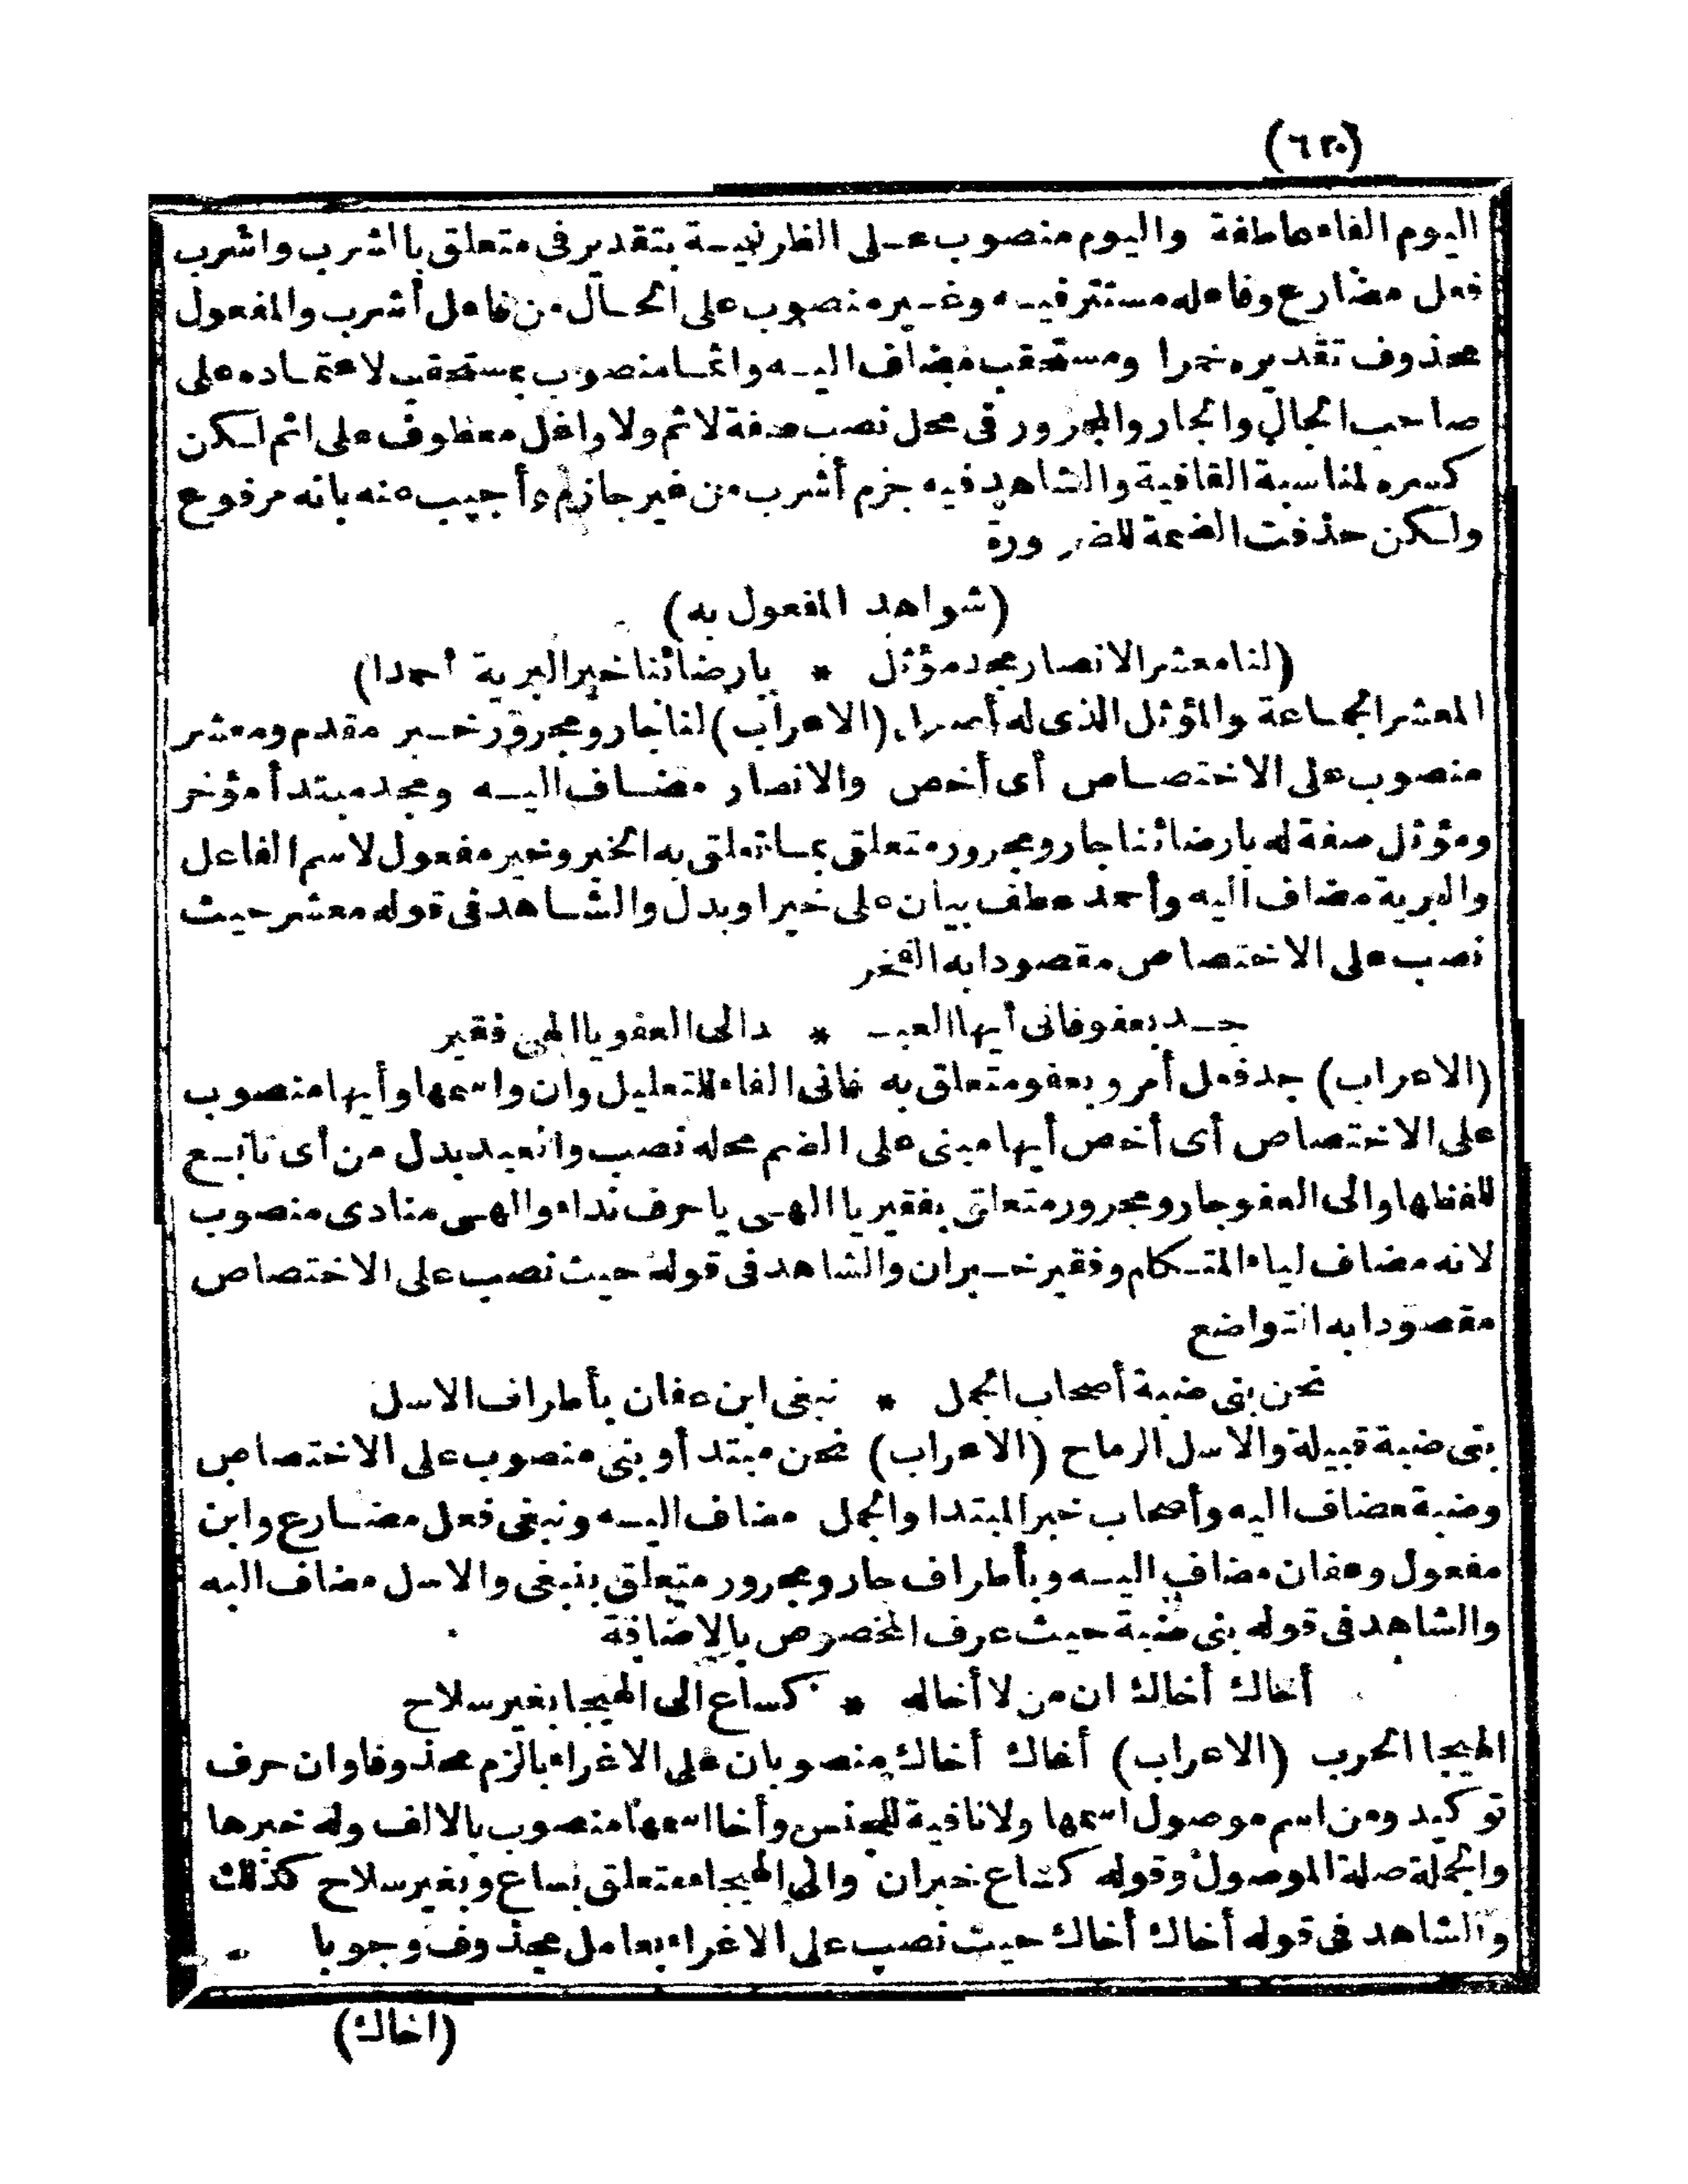 (٦٢٠)
اليوم الفاء عاطفة واليوم منصوب على الظرفية بتقدير فى متعلق باشرب واشرب
فعل مضارع وفاعله مستتر فيه وغير منصوب على الحال من فاعل أشرب والمفعول
محذوف تقديره خمرا ومستحقب مضاف اليه واثما منصوب بمستحقب لاعتماده على
صاحب الحال والجار والمجرور فى محل نصب صفة لاثم ولا واغل معطوف على اثم لكن
كسره لمناسبة القافية والشاهد فيه جزم أشرب من غير جازم وأجيب عنه بانه مرفوع
ولكن حذفت الضمة للضرورة
(شواهد المفعول به)
(لنا معشر الانصار مجد مؤثل * بارضائنا خير البرية احمدا)
المعشر الجماعة والمؤثل الذى له أصل (الاعراب) لنا جار ومجرور خبر مقدم ومعشر
منصوب على الاختصاص أى أخص والانصار مضاف اليه ومجد مبتدأ مؤخر
ومؤثل صفة له بارضائنا جار ومجرور متعلق بما تعلق به الخبر وخير مفعول لاسم الفاعل
والبرية مضاف اليه وأحمد عطف بيان على خير او بدل والشاهد فى قوله معشر حيث
نصب على الاختصاص مقصودا به الفخر
جد بعفو فانى أيها العبـ * د الى العفو يا الهى فقير
(الاعراب) جد فعل أمر وبعفو متعلق به فانى الفاء للتعليل وان واسمها وأيها منصوب
على الاختصاص أى أخص أيها مبنى على الضم محله نصب والعبد بدل من أى تابع
للفظها والى العفو جار ومجرور متعلق بفقير يا الهى يا حرف نداء والهى منادى منصوب
لانه مضاف لياء المتكلم وفقير خبر ان والشاهد فى قوله حيث نصب على الاختصاص
مقصودا به التواضع
نحن بنى ضبة أصحاب الجمل * نبغى ابن عفان بأطراف الاسل
بنى ضبة قبيلة والاسل الرماح (الاعراب) نحن مبتدأ وبنى منصوب على الاختصاص
وضبة مضاف اليه وأصحاب خبر المبتدا والجمل مضاف اليه ونبغى فعل مضارع وابن
مفعول وعفان مضاف اليه وبأطراف جار ومجرور متعلق بنبغى والاسل مضاف اليه
والشاهد فى قوله بنى ضبة حيث عرف المخصوص بالاضافة
أخاك أخاك ان من لا أخاله * كساع الى الهيجا بغير سلاح
الهيجا الحرب (الاعراب) أخاك أخاك منصوبان على الاغراء بالزم محذوفا وان حرف
توكيد ومن اسم موصول اسمها ولا نافية للجنس وأخا اسمها منصوب بالالف وله خبرها
والجملة صلة الموصول وقوله كساع خبر ان والى الهيجاء متعلق بساع وبغير سلاح كذلك
والشاهد فى قوله أخاك أخاك حيث نصب على الاغراء بعامل محذوف وجوبا
(اخاك)